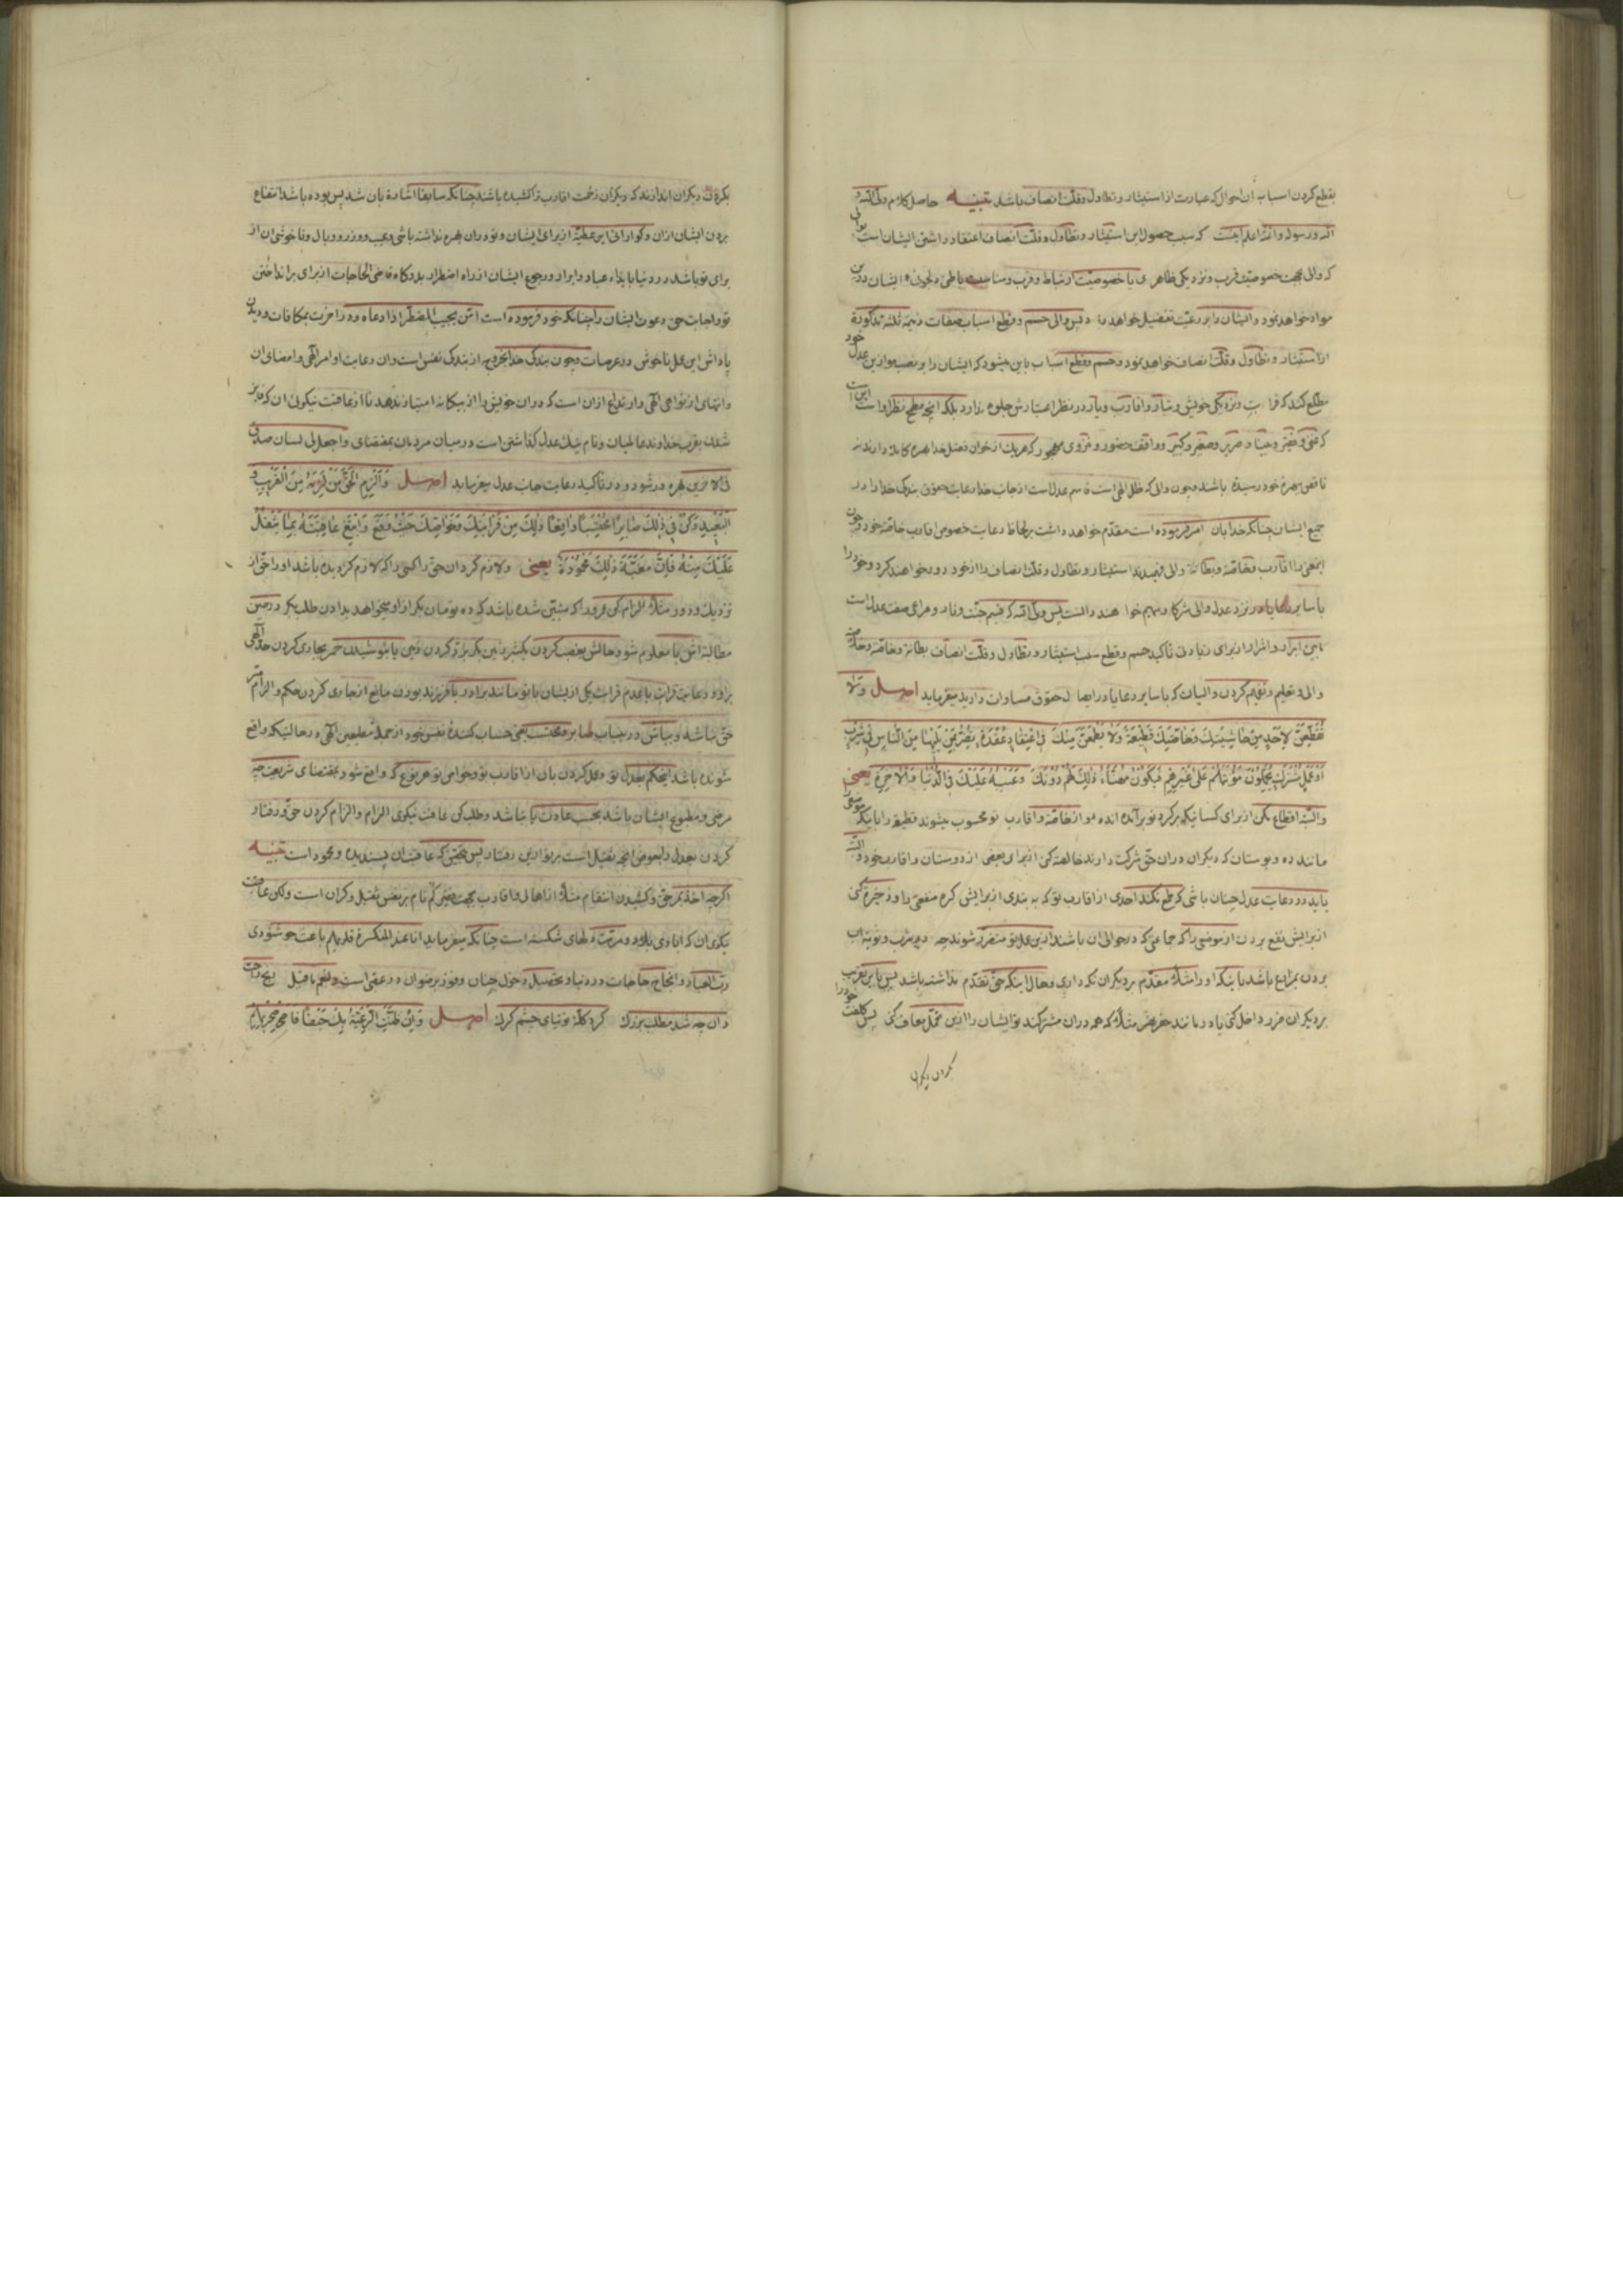 بقطع کردن اسباب آن احوال که عبارت از استیثار و تطاول و قلت انصاف باشد تنبیه حاصل کلام ولی الله و
الله و رسوله والله اعلم اینست که سبب حصول این استیثار و تطاول و قلت انصاف اعتقاد داشتن ایشان است
که والی بجهت خصوصیت قرب و نزدیکی ظاهری یا خصوصیت ارتباط و قرب و مناسبت باطنی ایشان درین
مواد خواهد نمود و ایشان را بر رعیت تفضیل خواهد داد پس والی حسم و قطع اسباب صفات ذمیمه ثلثه مذکوره
از استیثار و تطاول و قلت انصاف خواهد نمود و حسم و قطع اسباب باین میشود که ایشان را بر نصب موازین عدل خود
مطلع کند که قرابت و نزدیکی خویش و تبار و اقارب و یار در نظر اعتبارش جلوه ندارد بلکه آنچه مطمح نظر او است این است
که غنی و فقیر و صغیر و کبیر و واقف حضور و منزوی مهجور که هر یک از خوان فضل خدا بهره کامله دارند نه
ناقص بهره خود رسیده باشند و چون والی که ظل الهی است قاسم عدل است از جانب خدا رعایت حقوق بندگی خدا را در
جمیع ایشان چنانکه خدا بان امر فرموده است مقدم خواهد داشت بر لحاظ رعایت خصوص اقارب خاصه خود و چون
اینمعنی را اقارب و خاصه و بطانه والی فهمیدند استیثار و تطاول و قلت انصاف را از خود دور خواهند کرد و خود را
با سایر رعایا در نزد عدل والی شرکا و سهیم خواهند دانست پس ولی الله که قسیم جنت و نار و مرآی صفت عدل است
مابین ابرار و اشرار از برای زیادتی تأکید حسم و قطع سبب استیثار و تطاول و قلت انصاف بطانه و خاصه و
والی و تعلیم و تفهیم کردن والیان که با سایر رعایا در ایصال حقوق مساوات دارند میفرماید اصل ولا
تقطعن لاحد من حاشیتک و خاصتک قطیعة ولا یطمعن منک فی اعتقاد عقدة تضر بمن یلیها من الناس فی شرب
او عمل مشترک یحملون مؤنتهم علی غیرهم فیکون مهنأ ذلک لهم دونک و عیبه علیک فی الدنیا والاخرة یعنی
والبته اقطاع مکن از برای کسانیکه بر گرد تو برآمده اند و از خاصه و اقارب تو محسوب میشوند قطیعه را
مانند ده و بوستان که دیگران در ان حق شرکت دارند از برای بعضی از دوستان و اقارب خود و البته
باید در رعایت عدل چنان باشی که طمع نکند احدی از اقارب تو که به بندی از برایش گره منفعتی را و ذخیره کنی
از برایش نفع بردن از موضعی را که جماعتی که در حوالی ان باشند ازین علاقه متضرر شوند چه در شرب و نوبه آب
بردن بمزارع باشد باینکه او را مثلا مقدم بر دیگران نگه داری و حال اینکه حق تقدم نداشته باشد پس باین تقریب
بر دیگران ضرر داخل کنی یا در مانند حفر نهر مثلا که همه در ان مشترکند تو ایشان را ازین تحمل معاف کنی پس کلفت خود را
بگردن دیگران
بگردن دیگران اندازند که دیگران زحمت اقارب ترا کشیده باشند چنانکه سابقا اشاره بان شد پس بوده باشد انتفاع
بردن ایشان از ان و گوارائی این عطیه از برای ایشان و تو در ان بهره نداشته باشی و عیب و وزر و وبال و ناخوشی ان از
برای تو باشد در دنیا بایذاء عباد و ابرار و رجوع ایشان از راه اضطرار بدرگاه قاضی الحاجات از برای برانداختن
تو و اجابت حق دعوت ایشان را چنانکه خود فرموده است امن یجیب المضطر اذا دعاه و در آخرت بمکافات و دیدن
پاداش این عمل ناخوش در عرصات و چون بندگی خدا خروج از بندگی نفس است و ان رعایت اوامر الهی و امضای ان
و انتهای از نواهی الهی و ارتداع از ان است که در ان خویش را از بیگانه امتیاز ندهد تا از عاقبت نیکوئی ان که فایز
شدن بقرب خداوند عالمیان و نام نیک عدل گذاشتن است در میان مردمان بمقتضای واجعل لی لسان صدق
فی الاخرین بهره ور شود و در تأکید رعایت جانب عدل میفرماید اصل والزم الحق من لزمه من القریب و
البعید و کن فی ذلک صابرا محتسبا واقعا ذلک من قرابتک و خواصک حیث وقع وابتغ عاقبته بما یثقل
علیک منه فان مغبة ذلک محمودة یعنی و لازم گردان حق را کسی را که لازم گردیده باشد او را حق از
نزدیک و دور مثلا الزام کن عمرو را که مثبتی شده باشد که ده تومان بکر از او میخواهد بدادن طلب بکر در حین
مطالبه اش یا معلوم شود حالش بغصب کردن یکشبر زمین بکر بزور کردن زمین یا بنوشیدن خمر بجاری کردن حد الهی
بر او و رعایت قرابت یا عدم قرابت یکی ازیشان با تو مانند برادر یا فرزند بودن مانع از جاری کردن حکم و الزام
حق نباشد و بباش درین باب صابر و محتسب یعنی حساب کننده نفس خود از جمله مطیعین الهی در حالتیکه واقع
شونده باشد اینحکم بعدل تو و عمل کردن بان از اقارب تو و خواص تو هر نوع که واقع شود بمقتضای شریعت چه
مرضی و مطبوع ایشان باشد بحسب عادت یا نباشد و طلب کن عاقبت نیکوی الزام و الزام کردن حق و رفتار
کردن بعدل را بعوض آنچه ثقیل است بر تو ازین رفتار پس بتحقیق که عاقبت ان پسندیده و محمود است تنبیه
اگرچه اخذ بمر حق و کشیدن انتقام مثلا از اهالی و اقارب بر نفس ثقیل و گران است ولکن عاقبت
نیکوی ان که ابادی بلاد و مرمت دلهای شکسته است چنانکه میفرماید انا عند المنکسرة قلوبهم باعث خوشنودی
رب العباد و انجاح حاجات در دنیا و تحصیل دخول جنان و فوز برضوان در عقبی است و لنعم ما قیل رنج راحت
دان چه شد مطلب بزرگ گرد گله توتیای چشم گرگ اصل وان ظنت الرعیة بک حیفا فاصحر لهم